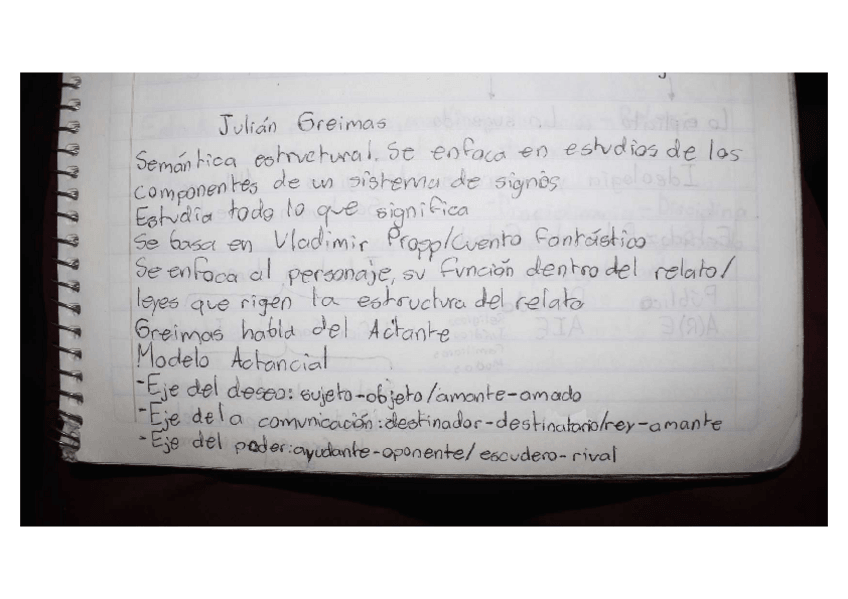 Julián Greimas
Semántica estructural. Se enfoca en estudios de los
componentes de un sistema de signos.
Estudia todo lo que significa
Se basa en Vladimir Propp/Cuento fantástico
Se enfoca al personaje, su función dentro del relato/
leyes que rigen la estructura del relato
Greimas habla del Actante
Modelo Actancial
-Eje del deseo: sujeto-objeto/amante-amado
-Eje de la comunicación: destinador-destinatario/rey-amante
-Eje del poder: ayudante-oponente/ escudero-rival